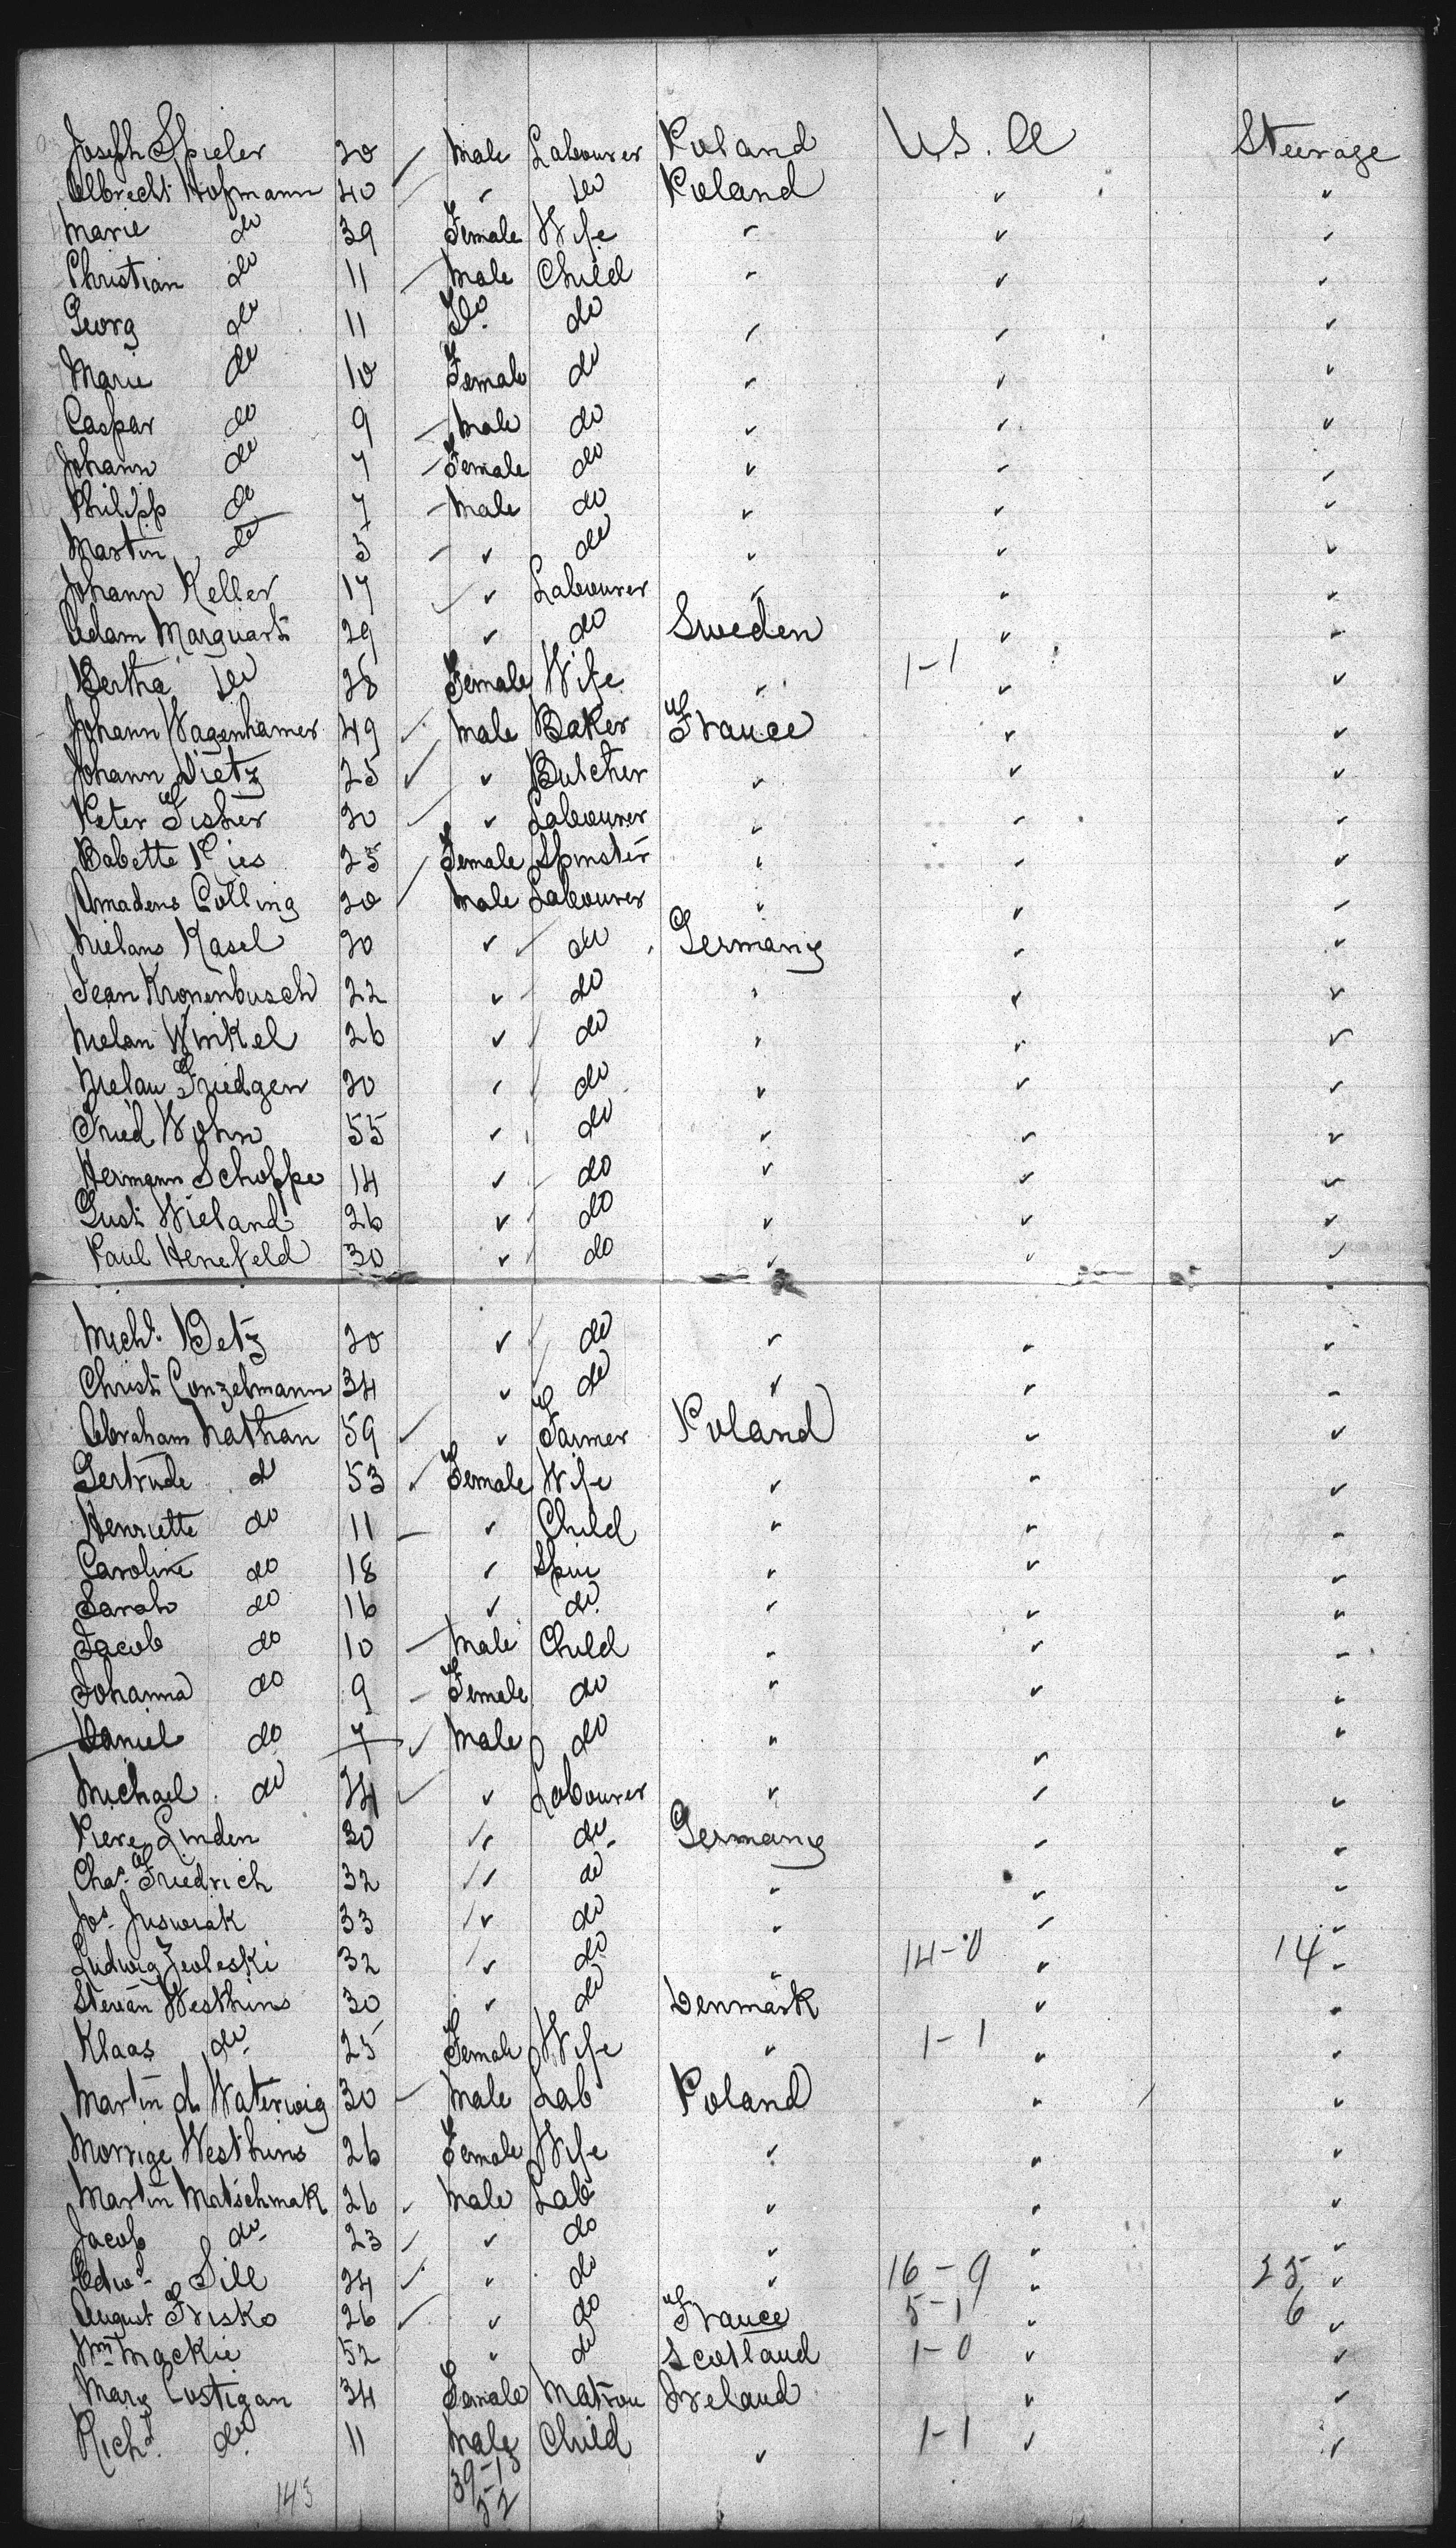 Joseph Spieler 20 Male Labourer Poland U.S. A Steerage
Albrecht Hofmann 40 " Do Poland " "
Marie do 39 Female Wife " " "
Christian do 11 Male Child " " "
Georg do 11 Do. do " " "
Marie do 10 Female do " " "
Caspar do 9 Male do " " "
Johann do 7 Female do " " "
Philipp do 7 Male do " " "
Martin do 5 " do " " "
Johann Keller 17 " Labourer " " "
Adam Marquart 29 " do Sweden " "
Bertha Do 28 Female Wife " 1-1 " "
Johann Wagenhamer 49 Male Baker France " "
Johann Dietz 25 " Butcher " " "
Peter Fisher 20 " Labourer " " "
Babette Pies 25 Female Spinster " " "
Amadens Colling 20 Male Labourer " " "
Kasel 20 " do Germany " "
Jean Kronenbusch 22 " do " " "
Winkel 26 " do " " "
Friedgen 20 " do " " "
Fried Wohn 55 " do " " "
Hermann Schoppe 14 " do " " "
Gust Wieland 26 " do " " "
Paul Henefeld 30 " do " " "
Michl. Betz 20 " do " " "
Christ Conzelmann 34 " do " " "
Abraham Nathan 59 " Farmer Poland " "
Gertrude d 53 Female Wife " " "
Henriette do 11 " Child " " "
Caroline do 18 " Spin " " "
Sarah do 16 " do " " "
Jacob do 10 Male Child " " "
Johanna do 9 Female do " " "
Daniel do 7 Male do " " "
Michael do 24 " Labourer " " "
Piere Linden 30 " do Germany " "
Chas. Friedrich 32 " do " " "
Jos. Juswrak 33 " do " " "
Ludwig Zeoleski 32 " do " 14-0 " 14 "
Stewan Westhins 30 " do Denmark " "
Klaas do 25 Female Wife " 1-1 " "
Martin d. Waterwig 30 Male Lab Poland " "
Morrige Westhins 26 Female Wife " " "
Martin Matschmak 26 Male Lab " " "
Jacob do 23 " do " " "
Edwd. Sill 24 " do " 16-9 " 25 "
August Frisko 26 " do France 5-1 " 6 "
Wm Mackie 52 " do Scotland 1-0 " "
Mary Costigan 34 Female Matron Ireland " "
Richd. do 11 Male Child " 1-1 " "
143 39-13
52